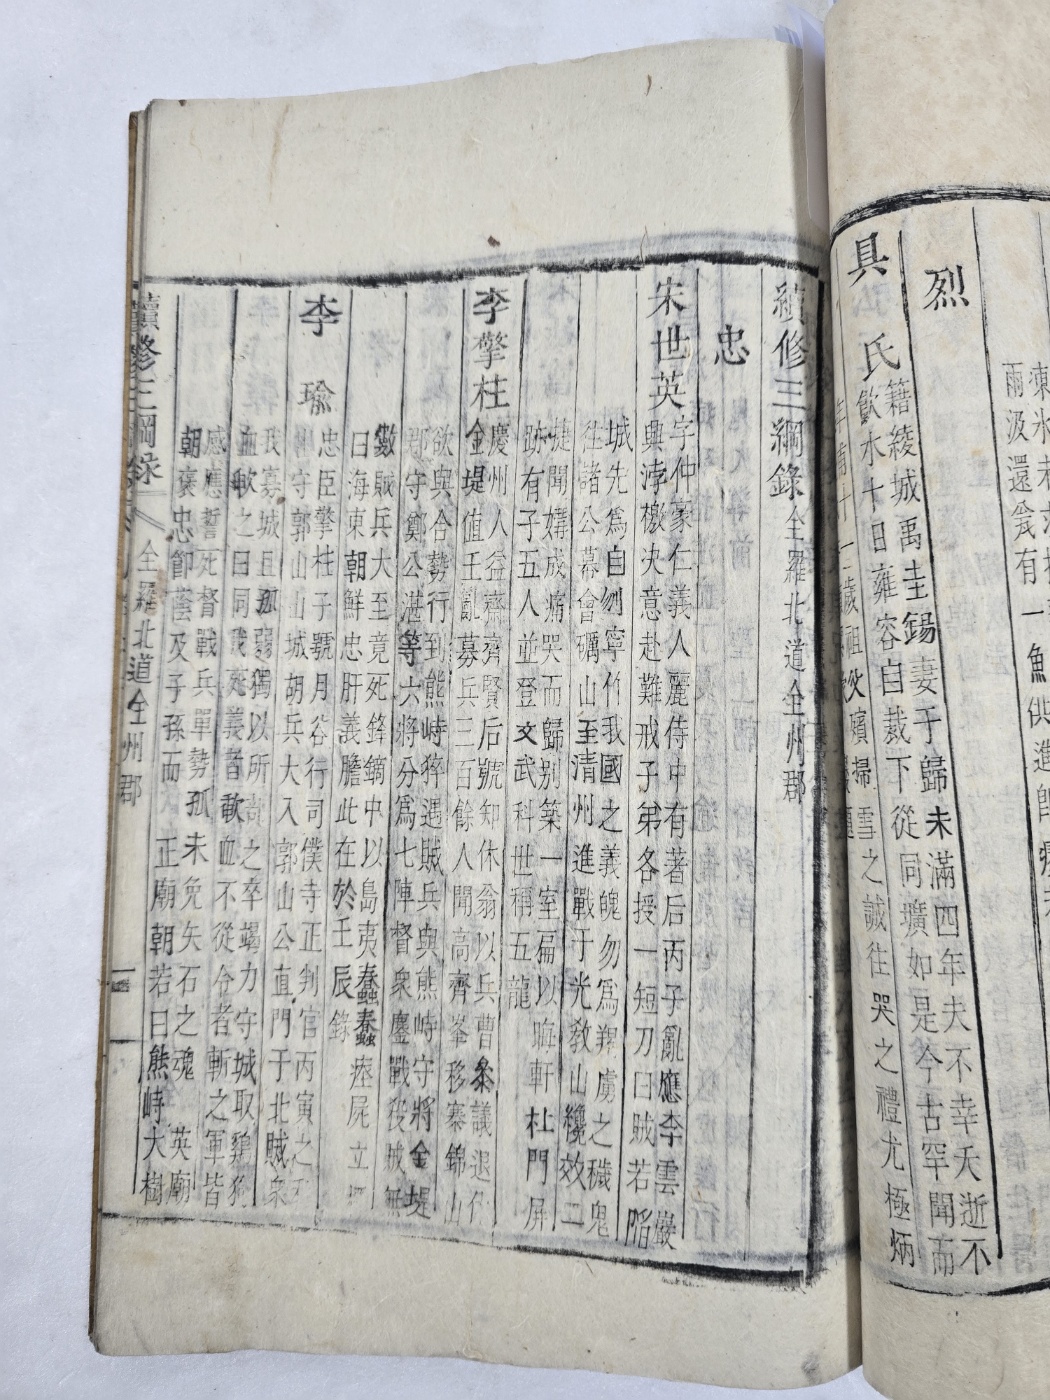 雨汲還飧有一魚供進卽療
烈
具氏 籍綾城禹圭錫妻于歸未滿四年夫不幸夭逝不
飮水十日雍容自裁下從同壙如是今古罕聞而
掃雪之誠往哭之禮尤極炳
續修三綱錄 全羅北道全州郡
忠
宋世英 字仲蒙仁義人麗侍中有著后丙子亂應李雲巖
興浡檄決意赴難戒子弟各授一短刀曰賊若陷
城先爲自刎寧作我國之義魄勿爲羯虜之穢鬼
往諸公幕會礪山至淸州進戰于光敎山纔效一
捷聞媾成痛哭而歸別築一室扁以晦軒杜門屏
跡有子五人並登文武科世稱五龍
李擎柱 慶州人益齋齊賢后號知休翁以兵曹叅議退休
金堤値壬亂募兵三百餘人聞高齊峯移寨錦山
欲與合勢行到熊峙猝遇賊兵與熊峙守將金堤
郡守鄭公湛等六將分爲七陣督衆鏖戰殺賊無
數賊兵大至竟死鋒鏑中以島夷蠢蠢瘞屍立
曰海東朝鮮忠肝義膽此在於壬辰錄
李瑜 忠臣擎柱子號月谷行司僕寺正判官丙寅之
守郭山山城胡兵大入郭山公直門于北賊衆
我寡城且孤弱獨以所之卒竭力守城取鷄狗
血歃之曰同我死義者歃血不從令者斬之軍皆
感應誓死督戰兵單勢孤未免矢石之魂 英廟
朝褒忠節蔭及子孫而 正廟朝若曰熊峙大樹
續修三綱錄 全羅北道全州郡